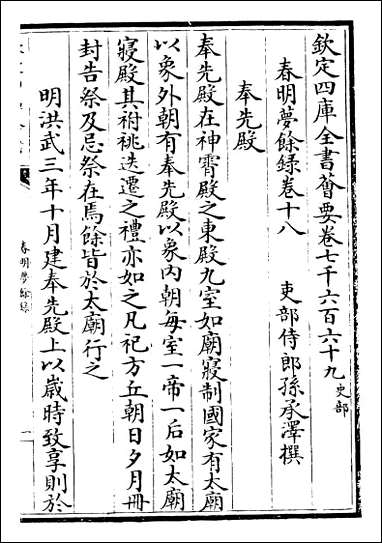 欽定四庫全書薈要卷七千六百六十九 史部
春明夢餘録卷十八
吏部侍郎孫承澤撰
奉先殿
奉先殿在神霄殿之東殿九室如廟寢制國家有太廟
以象外朝有奉先殿以象内朝每室一帝一后如太廟
寢殿其祔祧迭遷之禮亦如之凡祀方丘朝日夕月冊
封告祭及忌祭在焉餘皆於太廟行之
明洪武三年十月建奉先殿上以歲時致享則於
春明夢餘録
一